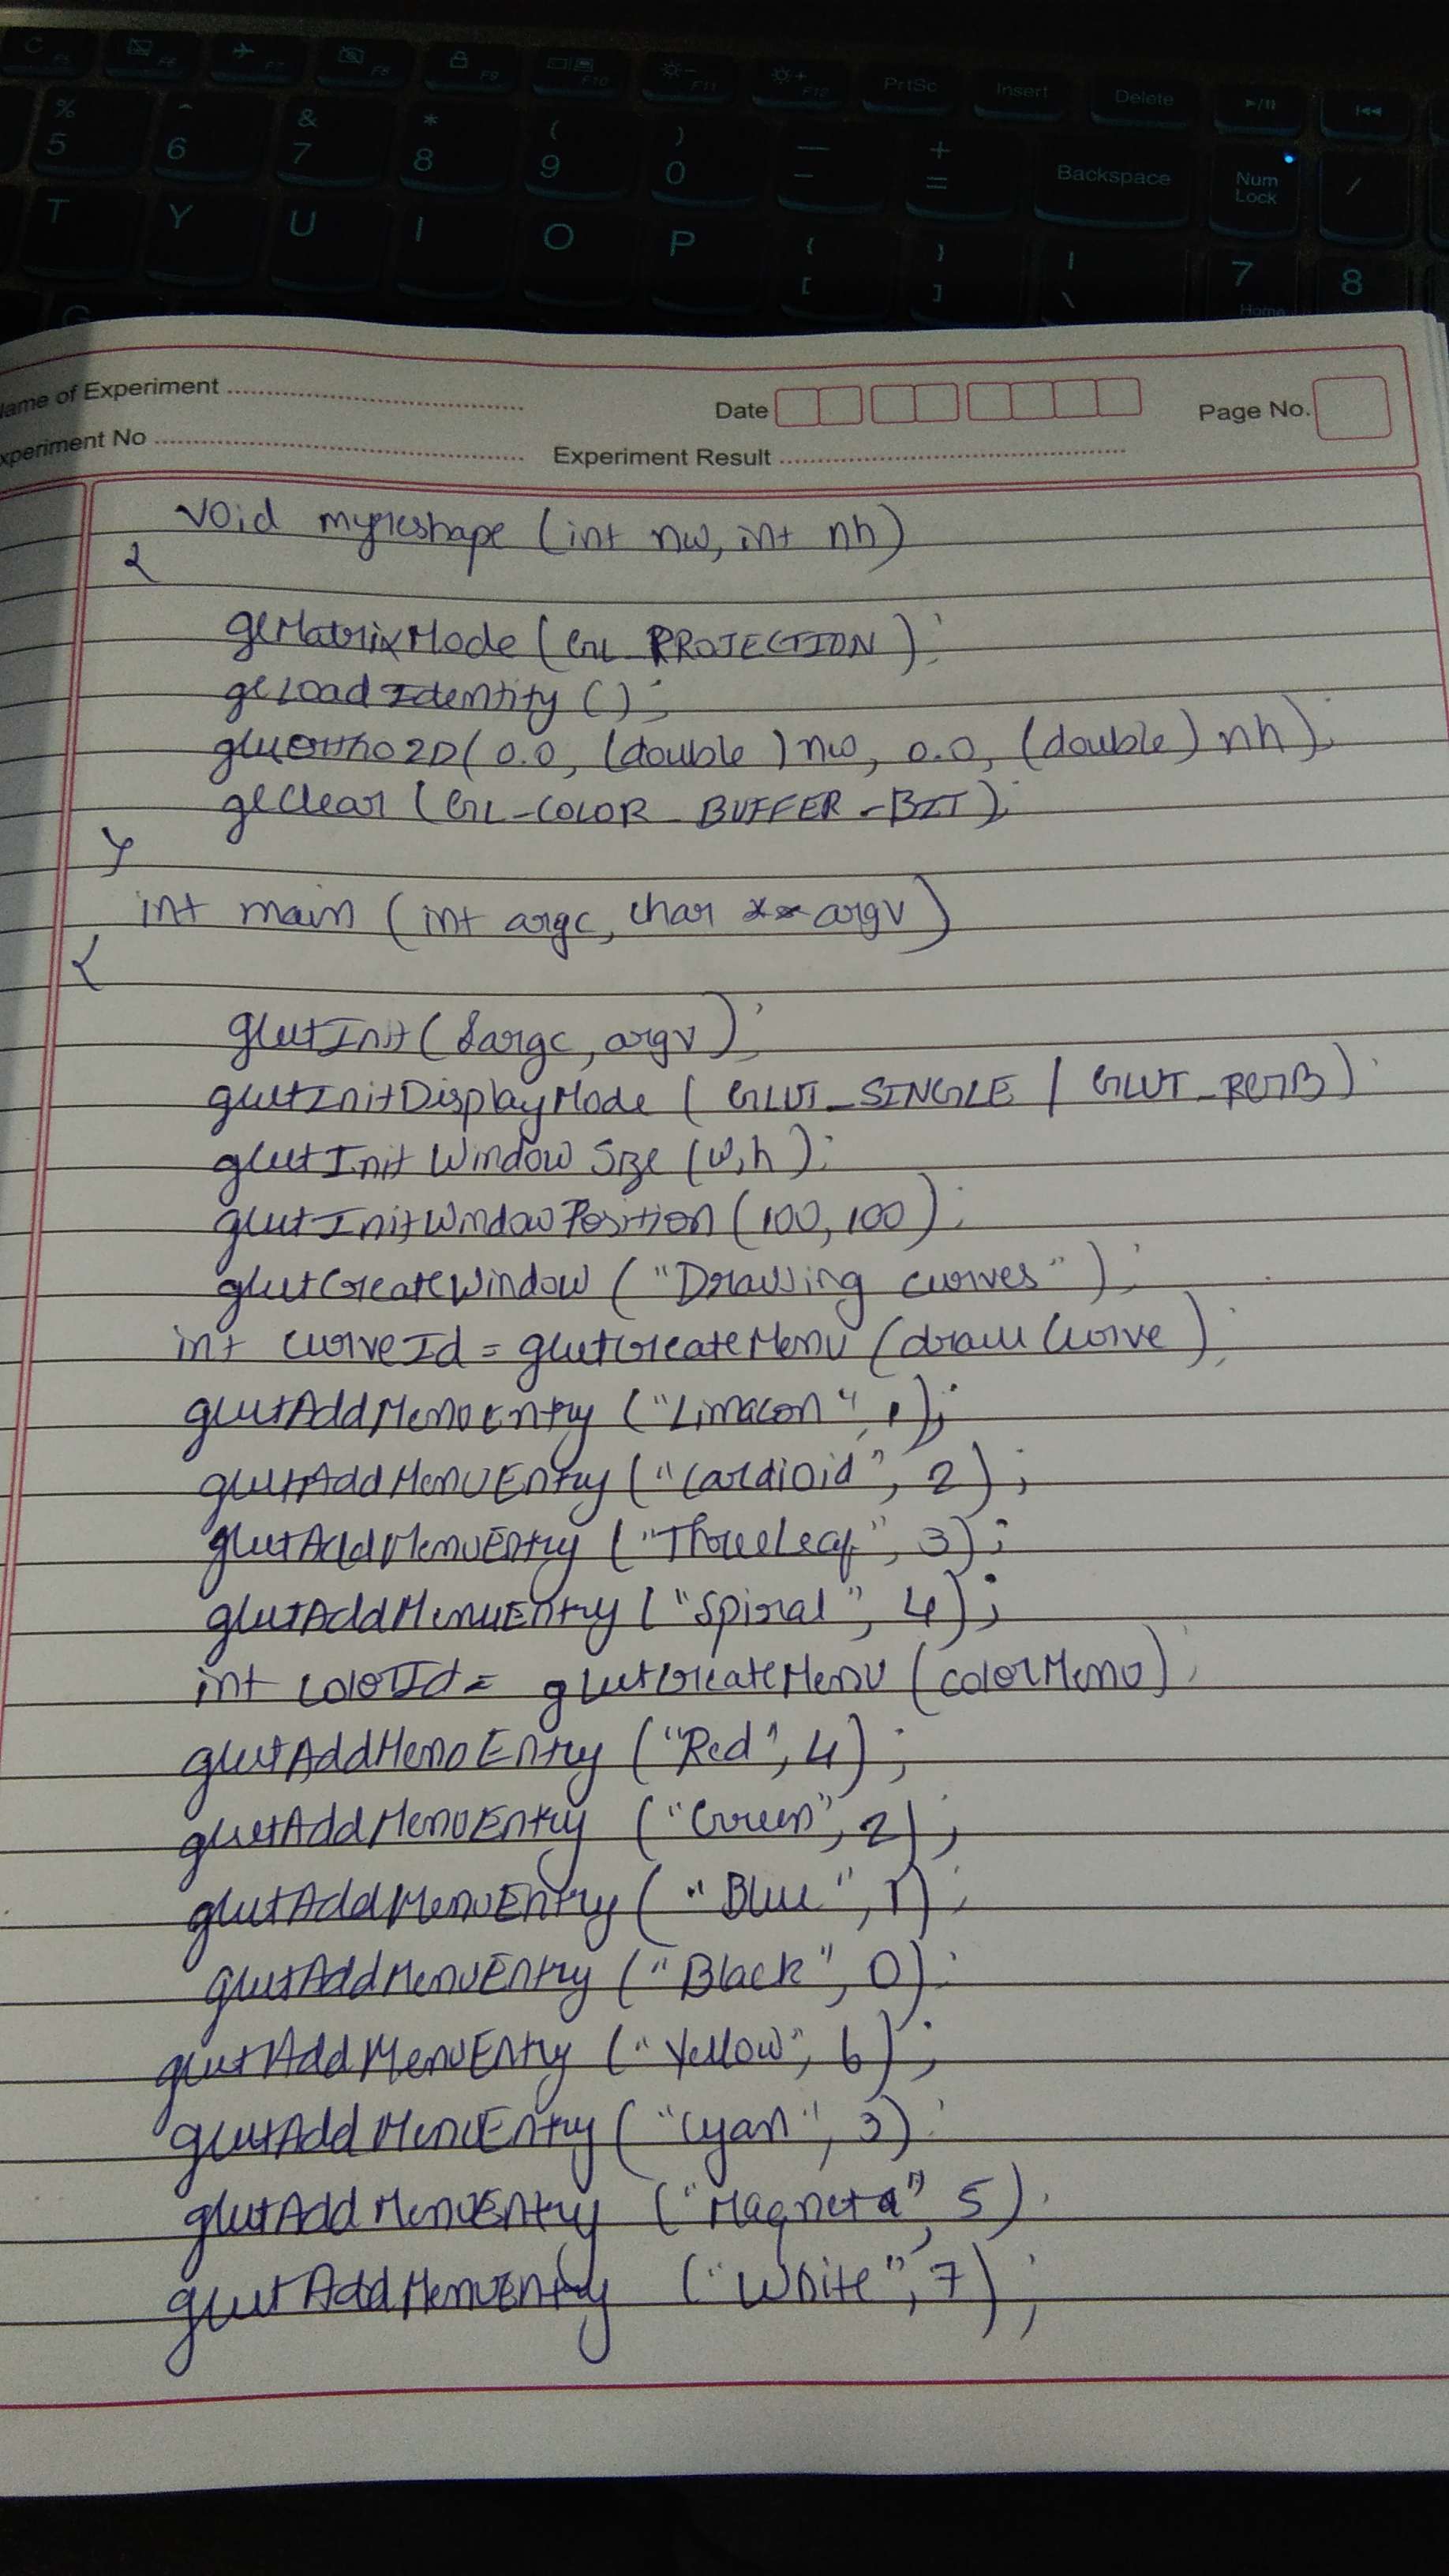 C F5 F6 F7 F8 F9 F10 F11 F12 PrtSc Insert Delete
% 5 ^ 6 & 7 * 8 ( 9 ) 0 — - + = Backspace Num Lock /
T Y U I O P { [ } ] | \ 7 Home 8
G
Name of Experiment Date Page No.
Experiment No Experiment Result
void myreshape (int nw, int nh)
{
glMatrixMode (GL_PROJECTION);
glLoadIdentity ();
gluOrtho2D( 0.0, (double) nw, 0.0, (double) nh);
glClear (GL-COLOR_BUFFER-BIT);
}
int main (int argc, char ** argv)
{
glutInit (&argc, argv);
glutInitDisplayMode ( GLUT_SINGLE | GLUT_RGB);
glutInitWindowSize (w,h);
glutInitWindowPosition (100, 100);
glutCreateWindow ("Drawing curves");
int curveId = glutCreateMenu (drawCurve);
glutAddMenuEntry ("Limacon", 1);
glutAddMenuEntry ("Cardioid", 2);
glutAddMenuEntry ("ThreeLeaf", 3);
glutAddMenuEntry ("Spiral", 4);
int colorId = glutCreateMenu (colorMenu);
glutAddMenuEntry ("Red", 4);
glutAddMenuEntry ("Green", 2);
glutAddMenuEntry ("Blue", 1);
glutAddMenuEntry ("Black", 0);
glutAddMenuEntry ("Yellow", 6);
glutAddMenuEntry ("Cyan", 3);
glutAddMenuEntry ("Magneta", 5);
glutAddMenuEntry ("White", 7);